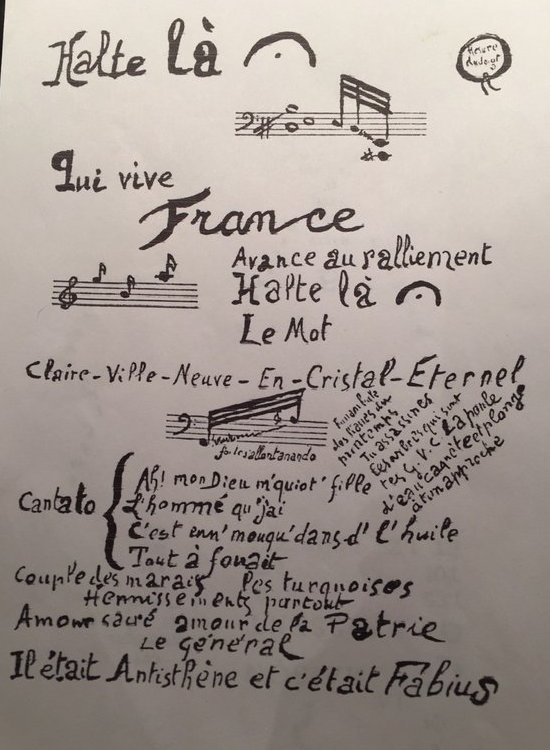 Halte là
Heure
Qui vive
France
Avance au ralliement
Halte là
Le Mot
Claire-Ville-Neuve-En-Cristal-Éternel
Funambule
des lianes du
printemps
Tu assassines
les ombres qui sont
tes G.V.C La poule
d'eau caquète et plonge
à ton approche
forlesallontanando
Cantato
Ah! mon Dieu m'quiot' fille
L'hommé qu'j'ai
C'est enn' mouqu' dans d' l'huile
Tout à fouait
Couple des marais les turquoises
Hennissements partout
Amour sacré amour de la Patrie
Le général
Il était Antisthène et c'était Fabius